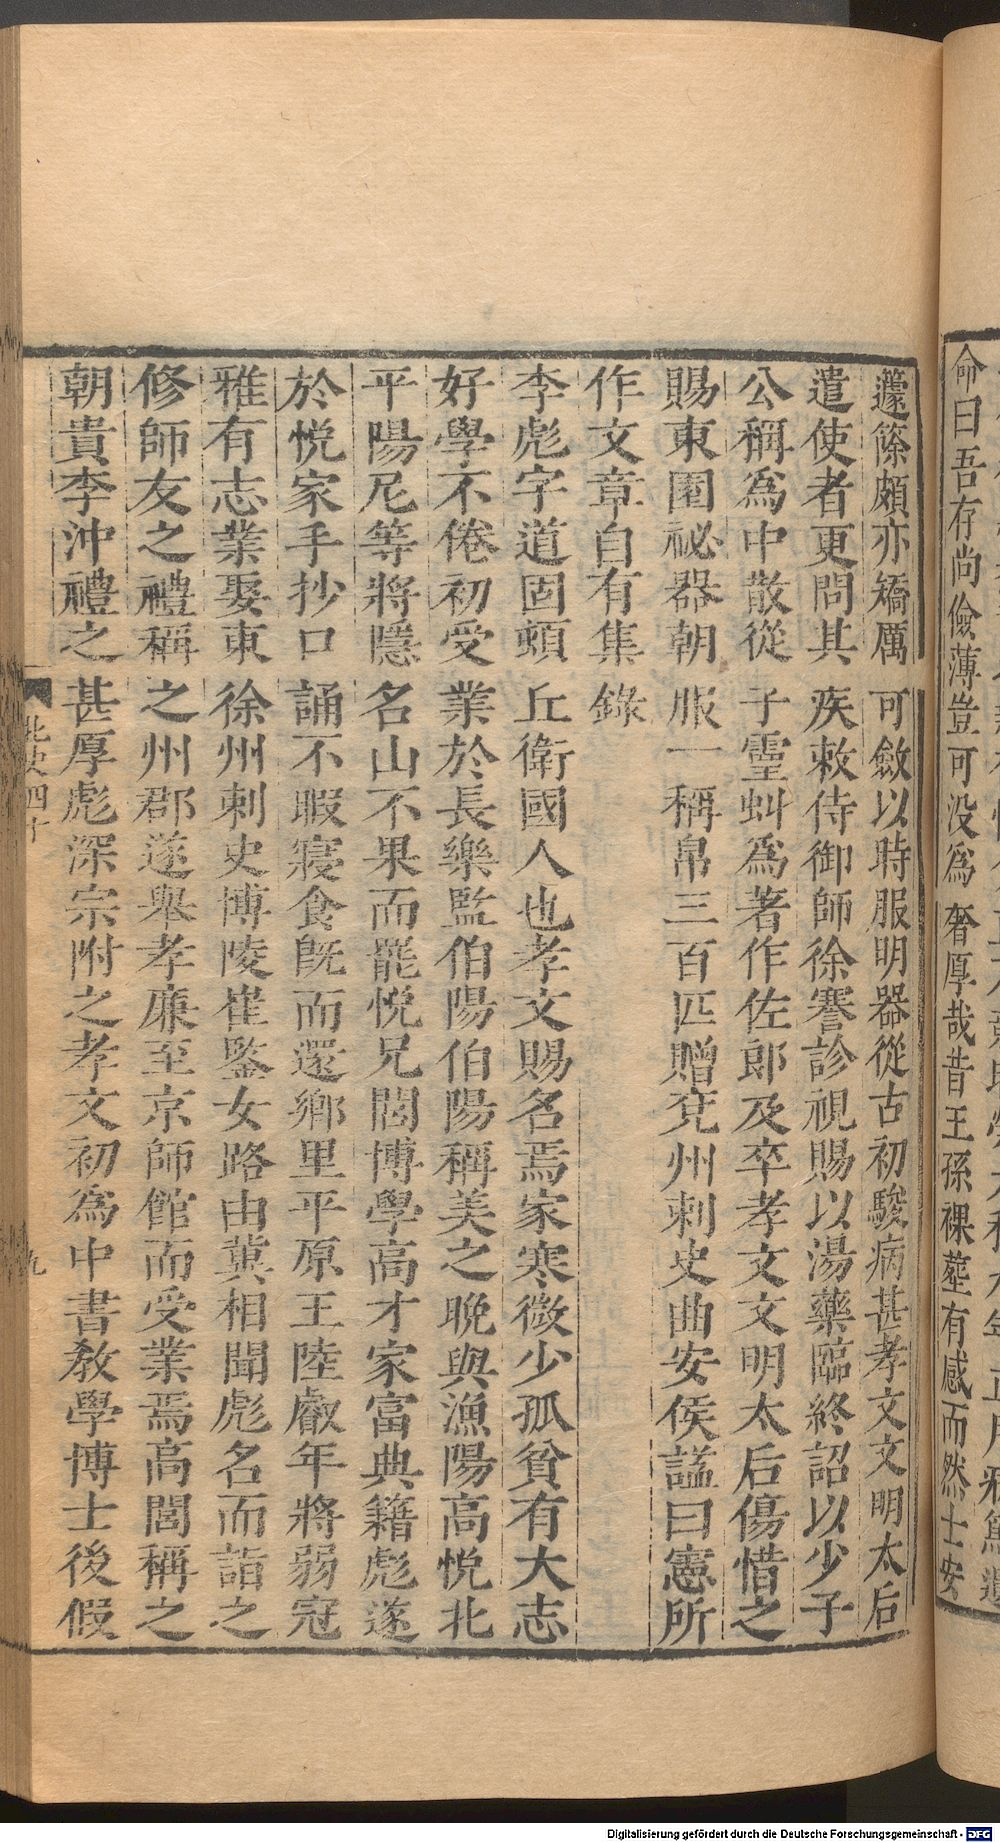 命曰吾存尚儉薄豈可没為奢厚哉昔王孫裸葬有感而然士安
籧篨頗亦矯厲可斂以時服明器從古初駿病甚孝文文明太后
遣使者更問其疾敕侍御師徐謇診視賜以湯藥臨終詔以少子
公稱為中散從子靈虯為著作佐郎及卒孝文文明太后傷惜之
賜東園祕器朝服一稱帛三百匹贈兗州刺史曲安侯諡曰憲所
作文章自有集錄
李彪字道固頓丘衛國人也孝文賜名焉家寒微少孤貧有大志
好學不倦初受業於長樂監伯陽伯陽稱美之晚與漁陽高悅北
平陽尼等將隱名山不果而罷悅兄閭博學高才家富典籍彪遂
於悅家手抄口誦不暇寢食既而還鄉里平原王陸叡年將弱冠
雅有志業娶東徐州刺史博陵崔鑒女路由冀相聞彪名而詣之
修師友之禮稱之州郡遂舉孝廉至京師館而受業焉高閭稱之
朝貴李沖禮之甚厚彪深宗附之孝文初為中書教學博士後假
北史四十
九
Digitalisierung gefördert durch die Deutsche Forschungsgemeinschaft - DFG